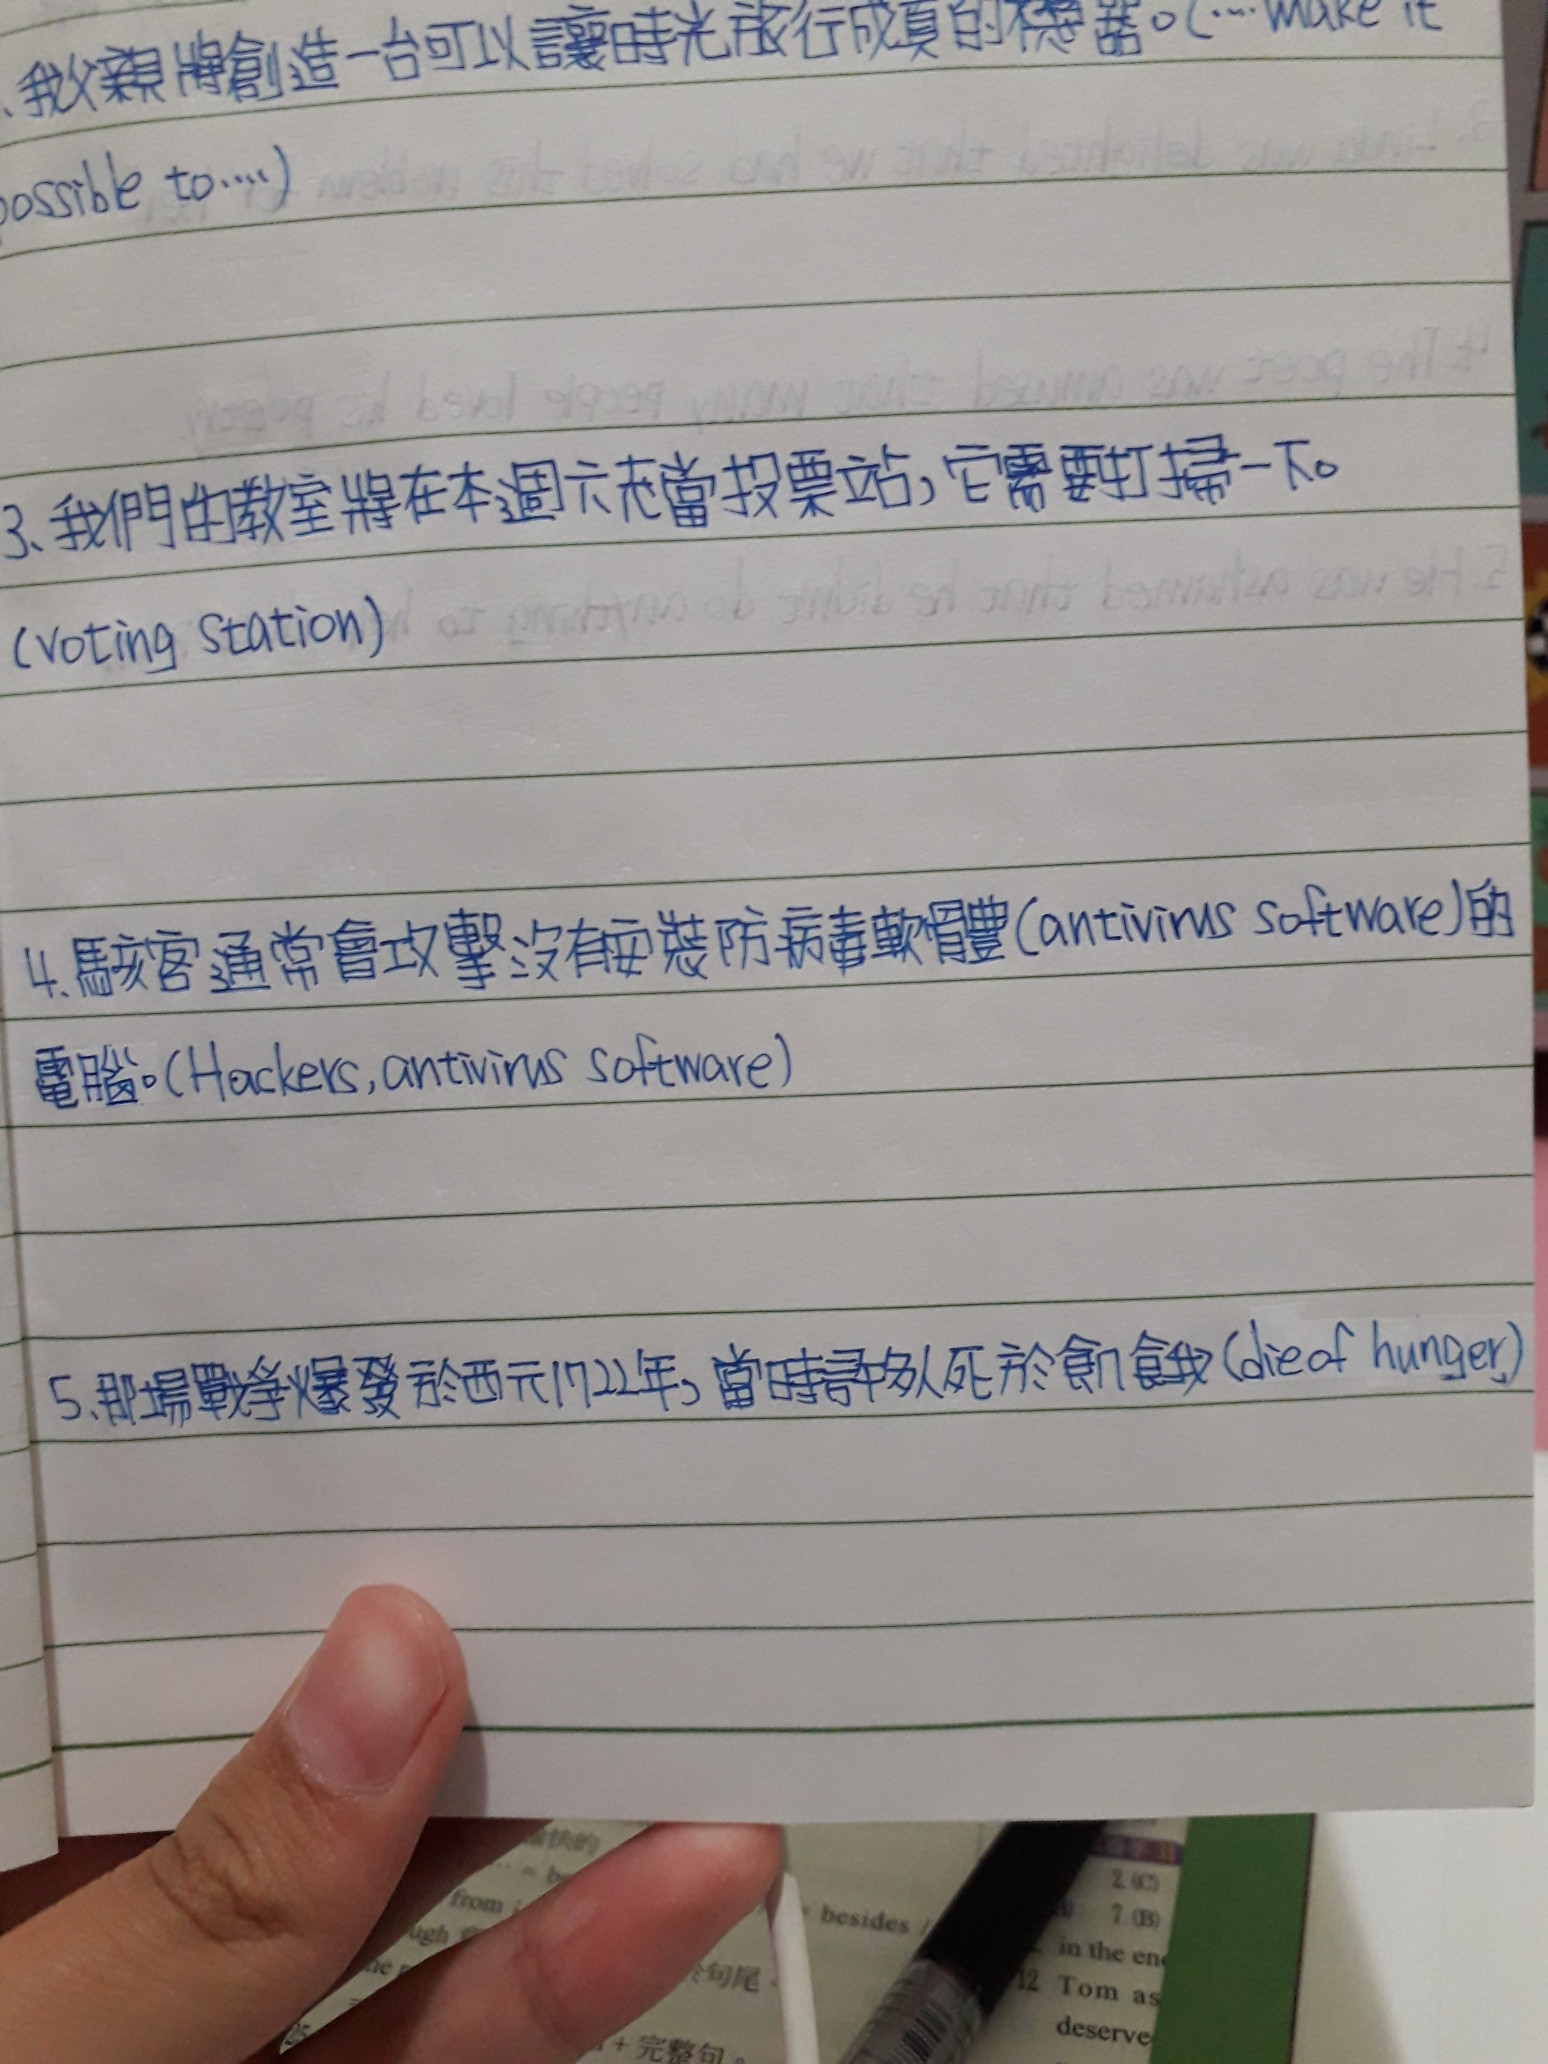 、我父親將創造一台可以讓時光旅行成真的機器。(....make it
possible to....)
3、我們的教室將在本週六充當投票站,它需要打掃一下。
(voting station)
4、駭客通常會攻擊沒有安裝防病毒軟體(antivirus software)的
電腦。(Hackers, antivirus software)
5、那場戰爭爆發於西元1722年,當時許多人死於飢餓(die of hunger)
besides /
2.(C)
7.(B)
from
in the en
12 Tom as
deserve
於句尾。
+ 完整句。